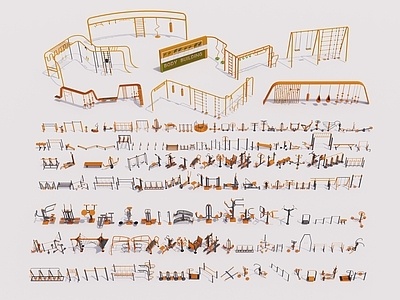 BODY BUILDING